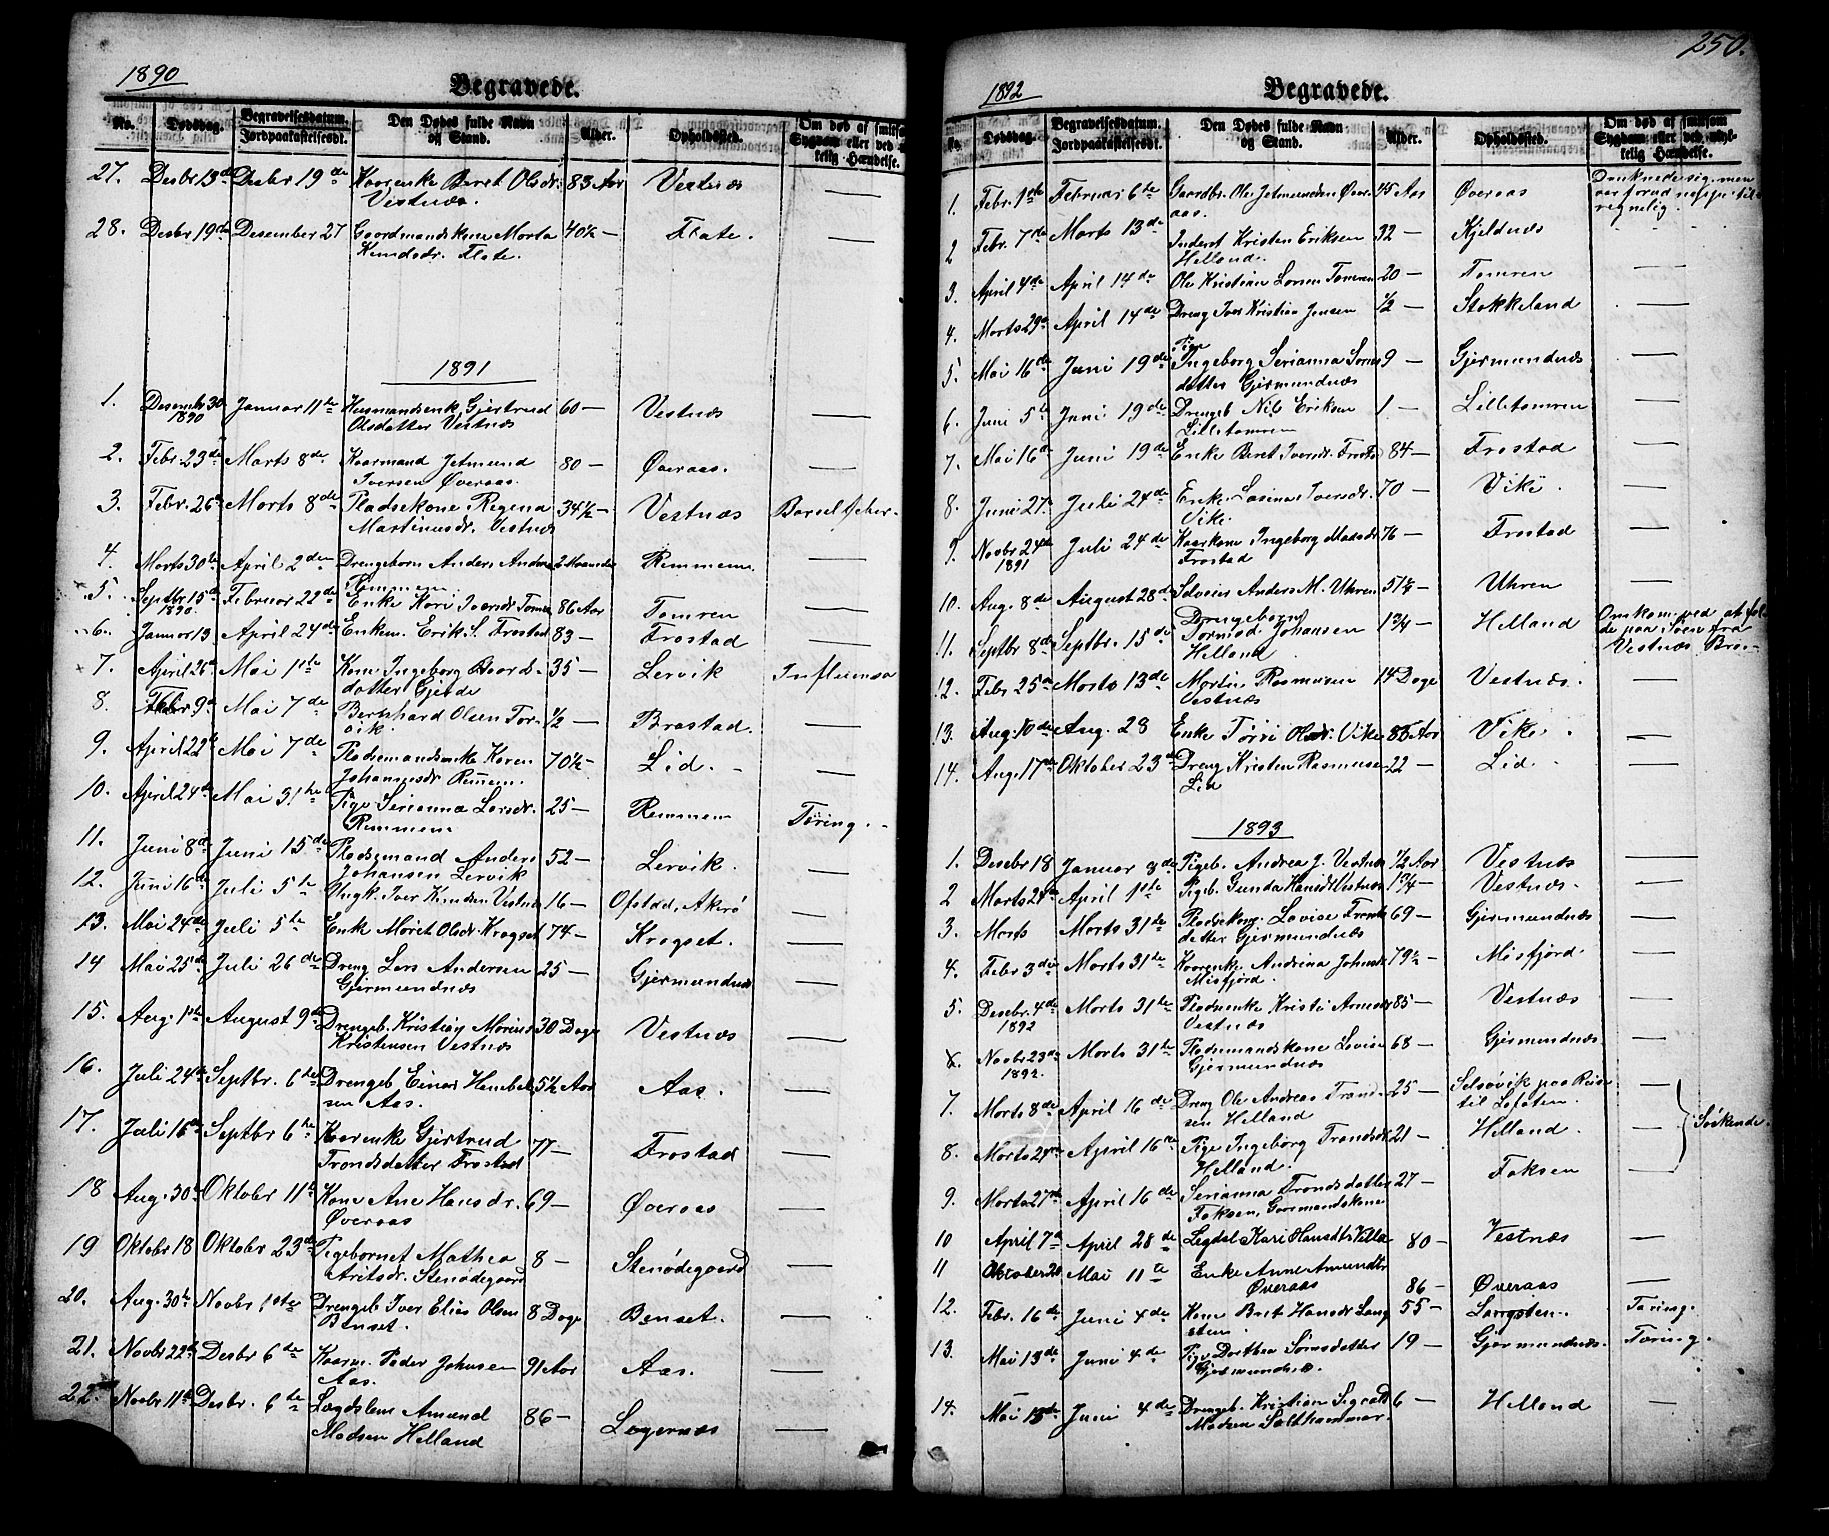 1890
Begravede.
No. Dødsdag. Begravelsesdatum. Jordpaakastelsesdt. Den Dødes fulde Navn og Stand. Alder. Opholdssted. Om død af smitsom Sygdom eller ved
kelig Hændelse.
27. Desbr 13de Desbr 19de Kaarenke Beret Olsdr. 83 Aar Vestnæs —
Vestnæs.
28. Desbr 19de Desember 27 Gaardmandskone Marta 40½ — Flate. —
Knudsdr. Flate.
1891
1. Desembr 30 Januar 11te Husmandsenk. Gjertrud 60 — Vestnæs —
1890 Olsdatter Vestnæs
2. Febr. 23de Marts 8de Kaarmand Jetmund 80 — Øveraas. —
Iversen Øveraas.
3. Febr. 26de Marts 8de Pladsekone Regina 34½ — Vestnæs Barselfeber.
Martinusdr. Vestnæs
4. Marts 30te April 2den Drengebarn Anders Anders 2 Maaneder Remmem —
Remmem.
5. Septbr 15de Februar 22de Enke Kari Iversdr Tomren 86 Aar Tomren —
1890.
6. Januar 13 April 24de Enkem. Erik S. Frostad 83 — Frostad —
7. April 26de Mai 1ste Kone Ingeborg Baards- 35 — Lervik Influensa
datter Gjelde
8. Febr 9de Mai 7de Bernhard Olsen Tor- ½ — Brastad. —
vik.
9. April 22de Mai 7de Pladsemandsenke Karen 70½ — Lid. —
Johannesdr Remem.
10. April 24de Mai 31te Pige Serianna Larsdr. 25 — Remmem Tæring.
Remmem
11. Juni 8de Juni 15de Pladsemand Anders 52 — Lervik. —
Johansen Lervik
12. Juni 16de Juli 5te Ungk. Iver Knudsen Vestnæs 16 — Akerø —
13. Mai 24de Juli 5te Enke Marit Olsdr. Krogset 74 — Krogset. —
14 Mai 25de Juli 26de Dreng Lars Andersen 25 — Gjermundnæs —
Gjermundnæs
15. Aug. 1ste August 9de Drengeb. Kristian Marius 30 Dage Vestnæs —
Kristensen Vestnæs
16. Juli 24de Septbr. 6te Drengeb. Einar 5½ Aar Aas. —
sen Aas.
17. Juli 16de Septbr 6te Kaarenke Gjertrud 77 — Frostad —
Trondsdatter Frostad
18 Aug. 30te Oktobr 11te Kone Ane Hansdr. 69 — Øveraas —
Øveraas
19 Oktobr 18 Oktobr 23de Pigebarnet Mathea 8 — Stenødegaard —
Stenødegaard
20. Aug. 30te Novbr 1ste Drengeb Iver Elias Olsen 8 Dage Benset. —
Benset.
21. Novbr 22de Desbr 6te Kaarm. Peder Johnsen 91 Aar Aas. —
Aas.
22. Novbr 11te Desbr. 6te Lægdslem Amund 86 — Lægernæs —
Madsen Helland
250.
1892
Begravede.
No. Dødsdag. Begravelsesdatum. Jordpaakastelsesdt. Den Dødes fulde Navn og Stand. Alder. Opholdssted. Om død af smitsom Sygdom eller ved ulyk-
kelig Hændelse.
1. Febr. 1ste Februar 6te Gaardbr. Ole Jetmundsen Øver- 45 Aar Øveraas Druknede sig, men
aas. var forud neppe til-
regnelig.
2 Febr. 7de Marts 13de Inderst Kristen Eriksen 32 — Kjeldnæs
Helland.
3. April 4de April 14de Ole Kristian Larsen Tomren 20 — Tomren —
4. Marts 29de April 14de Dreng Iver Kristian Jensen ½ — Stokkeland —
5. Mai 16de Juni 19de Pige Ingeborg Serianna Sørens 9 — Gjermundnæs —
datter Gjermundnæs
6. Juni 5te Juni 19de Drengeb Nils Eriksen 1 — Lilletomren —
Lilletomren
7. Mai 16de Juni 19de Enke Beret Iversdr. Frostad 84 — Frostad —
8. Juni 27. Juli 24de Enke Iversdr. 70 — Vike. —
Vike.
9. Novbr 24de Juli 24de Kaarkone Ingeborg Madsdr 76 — Frostad —
1891 Frostad
10. Aug. 8de August 28de Selveier Anders M. Uhren 51½ — Uhren —
11. Septbr 8de Septbr. 15de Drengebarn Tormod Johansen 1¾ — Helland Omkom ved at fal-
Helland de paa Søen fra
Vestnæs Bro.
12. Febr 25de Marts 13de Martin Rasmusen 14 Dage Vestnæs. —
Vestnæs
13. Aug. 10de Aug. 28 Enke Olsdr. Vike 86 Aar Vike. —
14. Aug. 17de Oktober 23de Dreng Kristen Rasmusen 22 — Lid. —
Lid
1893
1. Desebr 18 Januar 8de Pigeb. Andrea J. Vestnæs ½ Aar Vestnæs —
2 Marts April 1ste Pigeb. Gunda Hansdr Vestnæs 1¾ — Vestnæs. —
3. Marts Marts 31te Pladsekone. Lovise 69 — Gjermundnæs —
datter Gjermundnæs
4. Febr 3die Marts 31te Kaarenke. Andrina Johns 79½ — Misfjord. —
Misfjord.
5. Desebr. 4de Marts 31te Pladsenke Kristi Arnesdr 85 — Vestnæs —
1892 Vestnæs
6. Novbr 23de Marts 31te Pladsemandskone Lovise 68 — Gjermundnæs —
1892. Gjermundnæs
7. Marts 8de April 16de Dreng Ole Andreas Trond- 25 — Selsøvik paa Reise —
sen Helland til Lofoten.
8. Marts April 16de Pige Ingeborg Trondsdr 21 — Helland. — Søskende.
Helland.
9. Marts 27de April 16de Serianna Trondsdatter 27 — Foksen —
Foksen, Gaarmandskone
10 April 7de April 28de Lægdsl. Kari Hansdtr 80 — Vestnæs —
11 Oktober Mai 11te Enke Anne Amundsdtr 86 — Øveraas —
Øveraas
12. Febr. 16de Juni 4de Kone Brit Hansdr Lang- 55 — Langsten. Tæring.
sten
13. Mai 13de Juni 4de Pige Dorthea Sørensdatter 19 — Gjermundnæs. Tæring.
Gjermundnæs.
14. Mai Juni 4de Drengeb. Kristian Sigvald 6 — Helland —
Madsen Salthammer.